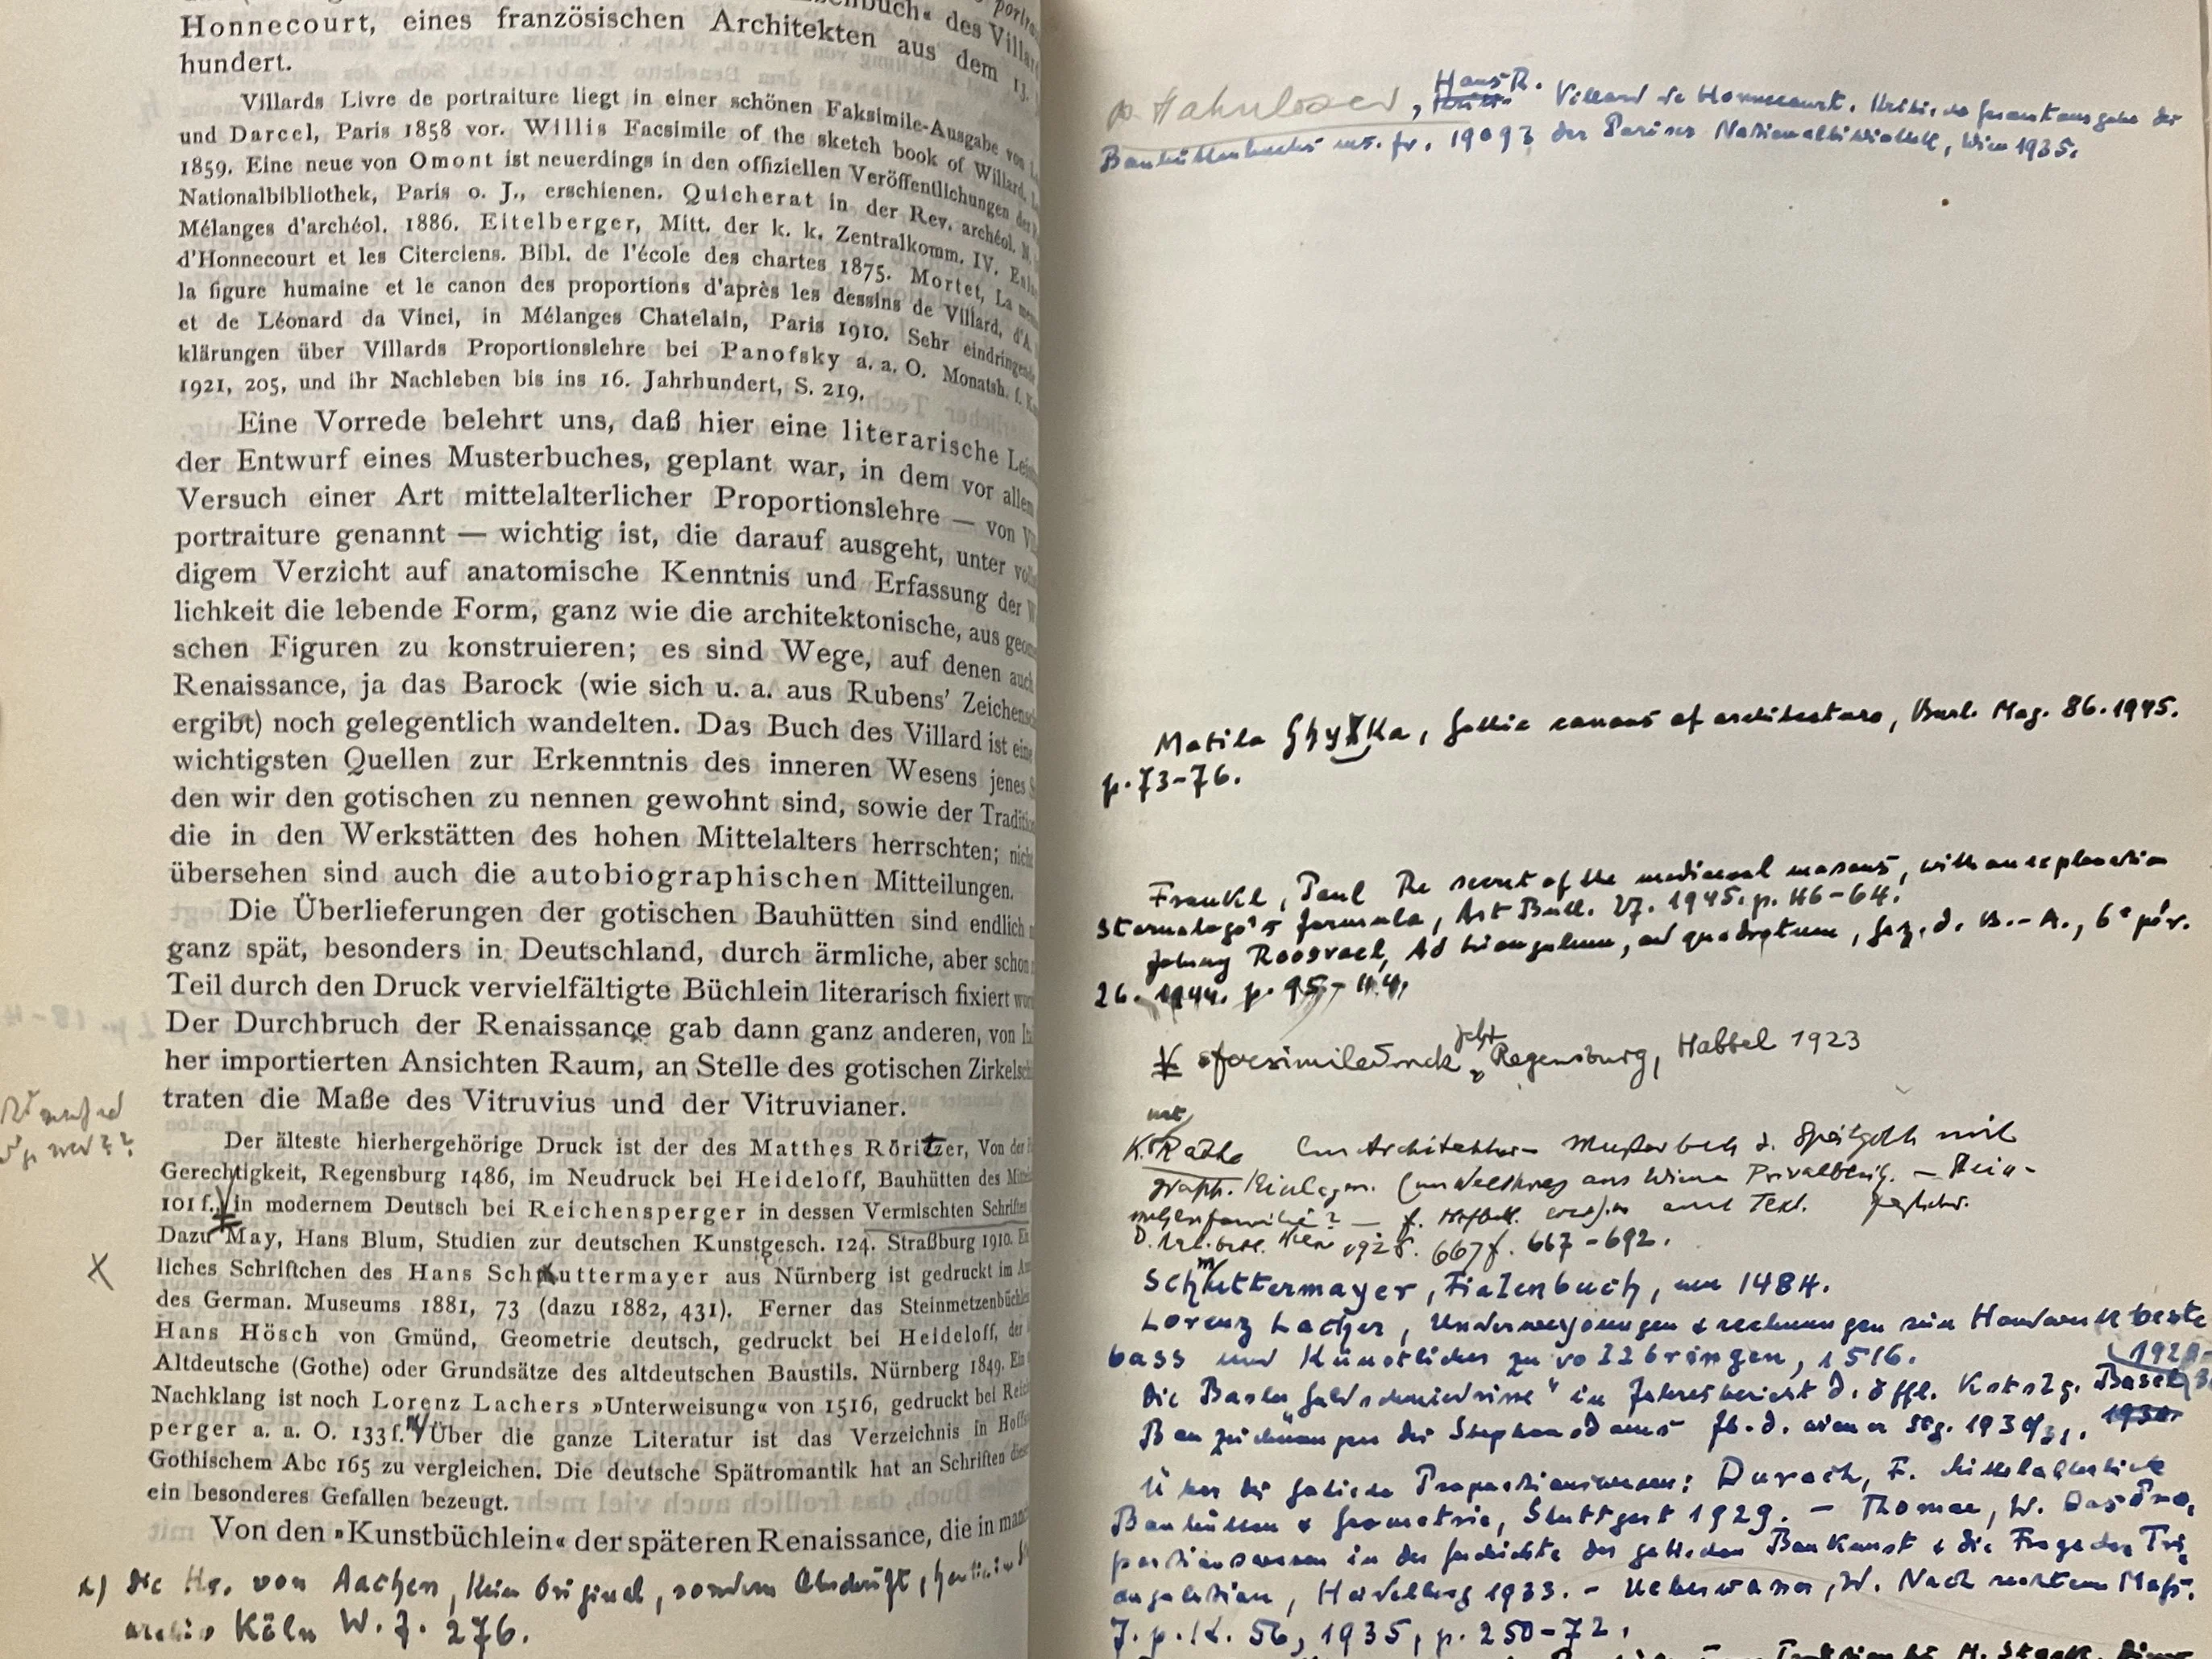 des Villar
Honnecourt, eines französischen Architekten aus dem 13.
hundert.
Villards Livre de portraiture liegt in einer schönen Faksimile-Ausgabe von
und Darcel, Paris 1858 vor. Willis Facsimile of the sketch book of Willard,
1859. Eine neue von Omont ist neuerdings in den offiziellen Veröffentlichungen der
Nationalbibliothek, Paris o. J., erschienen. Quicherat in der Rev. archéol. N.
Mélanges d'archéol. 1886. Eitelberger, Mitt. der k. k. Zentralkomm. IV.
d'Honnecourt et les Citerciens. Bibl. de l'école des chartes 1875. Mortet, La
la figure humaine et le canon des proportions d'après les dessins de Villard, d'A.
et de Léonard da Vinci, in Mélanges Chatelain, Paris 1910. Sehr eindringende
klärungen über Villards Proportionslehre bei Panofsky a. a. O. Monatsh. f. K
1921, 205, und ihr Nachleben bis ins 16. Jahrhundert, S. 219.
Eine Vorrede belehrt uns, daß hier eine literarische Lei
der Entwurf eines Musterbuches, geplant war, in dem vor allem
Versuch einer Art mittelalterlicher Proportionslehre — von V
portraiture genannt — wichtig ist, die darauf ausgeht, unter vol
digem Verzicht auf anatomische Kenntnis und Erfassung der W
lichkeit die lebende Form, ganz wie die architektonische, aus geo
schen Figuren zu konstruieren; es sind Wege, auf denen auch
Renaissance, ja das Barock (wie sich u. a. aus Rubens' Zeichens
ergibt) noch gelegentlich wandelten. Das Buch des Villard ist eine
wichtigsten Quellen zur Erkenntnis des inneren Wesens jenes S
den wir den gotischen zu nennen gewohnt sind, sowie der Tradition
die in den Werkstätten des hohen Mittelalters herrschten; nich
übersehen sind auch die autobiographischen Mitteilungen.
Die Überlieferungen der gotischen Bauhütten sind endlich
ganz spät, besonders in Deutschland, durch ärmliche, aber schon
Teil durch den Druck vervielfältigte Büchlein literarisch fixiert wor
Der Durchbruch der Renaissance gab dann ganz anderen, von I
her importierten Ansichten Raum, an Stelle des gotischen Zirkels
traten die Maße des Vitruvius und der Vitruvianer.
Der älteste hierhergehörige Druck ist der des Matthes Röritzer, Von der
Gerechtigkeit, Regensburg 1486, im Neudruck bei Heideloff, Bauhütten des Mitt
101 f. in modernem Deutsch bei Reichensperger in dessen Vermischten Schriften
Dazu May, Hans Blum, Studien zur deutschen Kunstgesch. 124. Straßburg 1910.
liches Schriftchen des Hans Schmuttermayer aus Nürnberg ist gedruckt im A
des German. Museums 1881, 73 (dazu 1882, 431). Ferner das Steinmetzenbüchle
Hans Hösch von Gmünd, Geometrie deutsch, gedruckt bei Heideloff, der
Altdeutsche (Gothe) oder Grundsätze des altdeutschen Baustils. Nürnberg 1849.
Nachklang ist noch Lorenz Lachers »Unterweisung« von 1516, gedruckt bei Rei
perger a. a. O. 133 f. Über die ganze Literatur ist das Verzeichnis in Hoff
Gothischem Abc 165 zu vergleichen. Die deutsche Spätromantik hat an Schriften dies
ein besonderes Gefallen bezeugt.
Von den »Kunstbüchlein« der späteren Renaissance, die in man
Die Hs. von Aachen, kein Original, sondern Abschrift,
Köln W. f. 276.
Hahnloser, Hans R. Villard de Honnecourt. Kritische Gesamtausgabe der
Bauhüttenbuchs ms. fr. 19093 der Pariser Nationalbibliothek, Wien 1935.
Matila Ghyka, Gothic canons of architecture, Burl. Mag. 86. 1945.
p. 73-76.
Frankl, Paul The secret of the mediaeval masons, with an explanation
Stornaloco's formula, Art Bull. 27. 1945. p. 46-64.
Johnny Roosval, Ad triangulum, ad quadratum, Gaz. d. B.-A., 6e pér.
26. 1944. p.
Facsimiledruck jetzt Regensburg, Habbel 1923
K. Rathe Ein Architektur-Musterbuch d. Spätgotik mit
graph. Einlagen. aus Wiener Privatbesitz.
667-692.
Schmuttermayer, Fialenbuch, um 1484.
Lorenz Lacher, Underweysungen & rechnungen sein Handwerk beste
bass und Künstlicher zu vollbringen, 1516.
Die Basler Goldschmiedrisse" in Jahresbericht d. öffl. Kstslg. Basel
Bauzeichnungen des Stephansdoms Jb. d. Wiener Slg.
Über die gotischen Proportionswesen: Durach, F. Mittelalterliche
Bauhütten & Geometrie, Stuttgart 1929. - Thomae, W. Das Pro,
portionswesen in der Geschichte der gotischen Baukunst & die Frage der Tri,
angulation, Heidelberg 1933. - Ueberwasser, W. Nach rechtem Maß.
J. p. K. 56, 1935, p. 250-72.